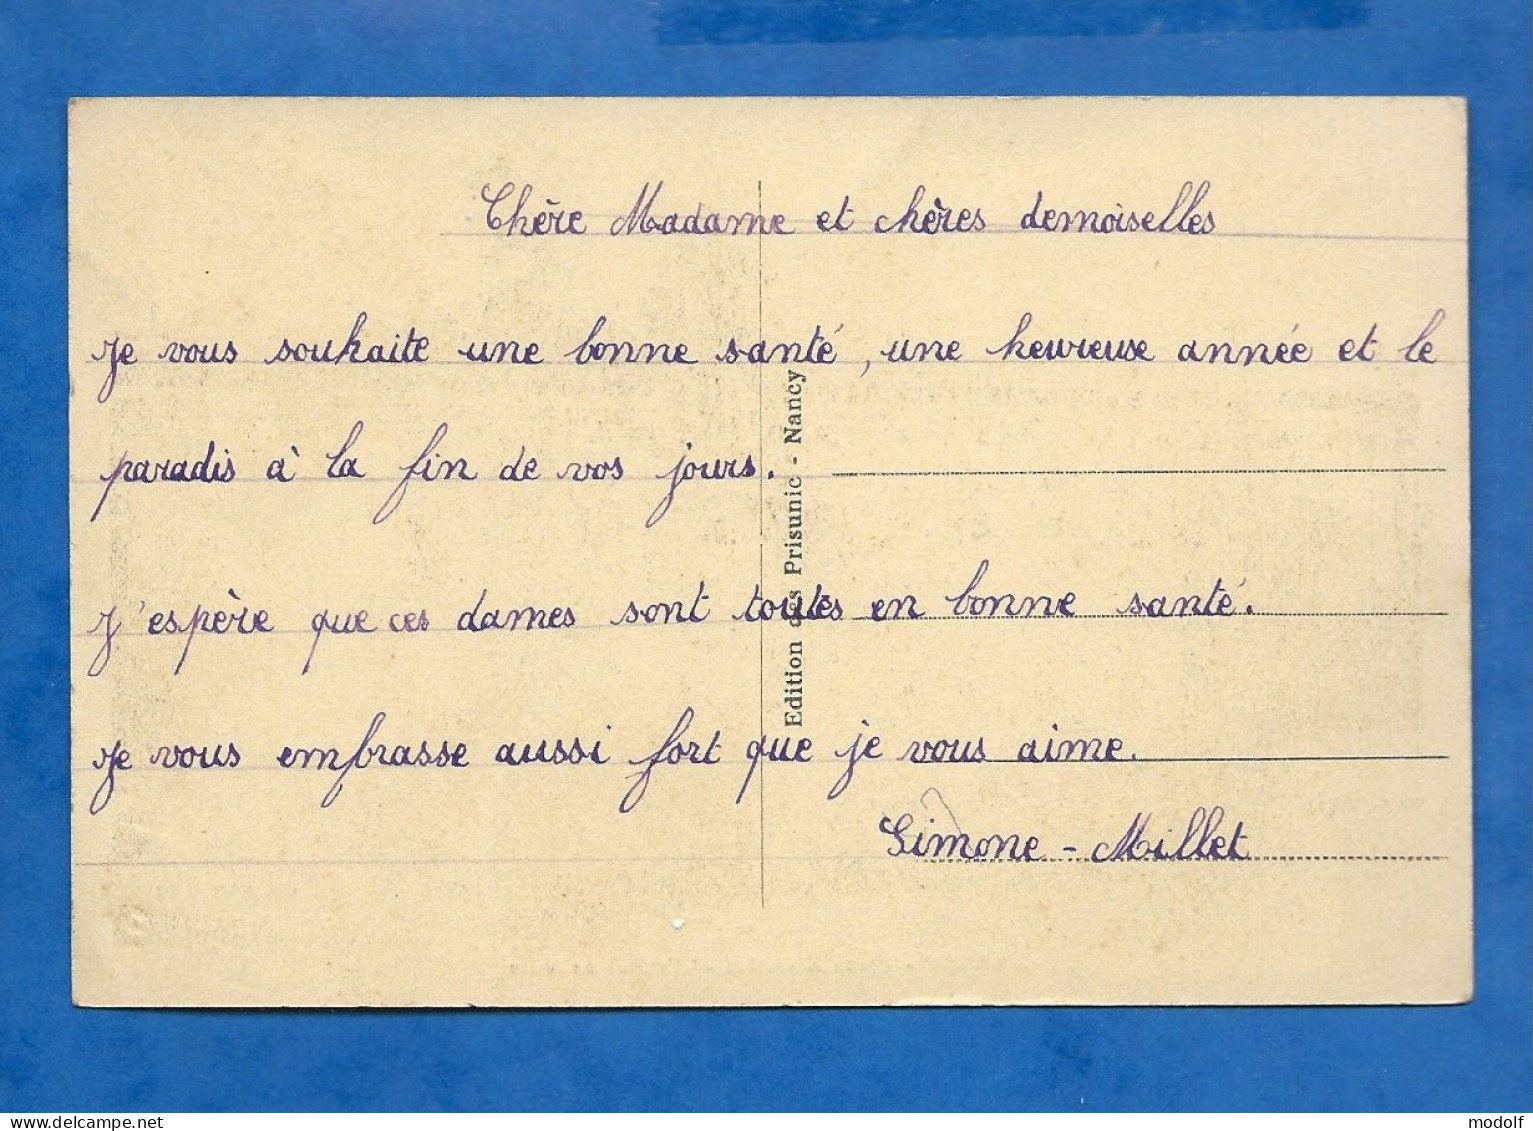 Chère Madame et chères demoiselles
Je vous souhaite une bonne santé, une heureuse année et le
paradis à la fin de vos jours.
J'espère que ces dames sont toutes en bonne santé.
Je vous embrasse aussi fort que je vous aime.
Simone - Millet
Edition des Prisunic - Nancy
delcampe.net
modolf